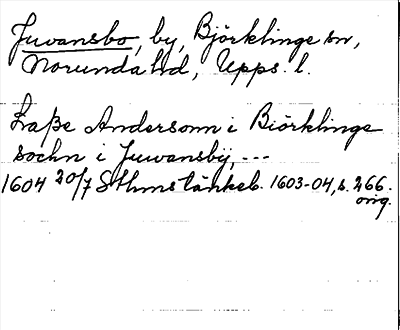 Juvansbo, by, Björklinge sn,
Norunda hd, Upps. l.
Laße Andersonn i Biörklinge
sochn i Juwansbÿ, ---
1604 20/7 Sthms tänkeb. 1603-04, s. 266.
orig.